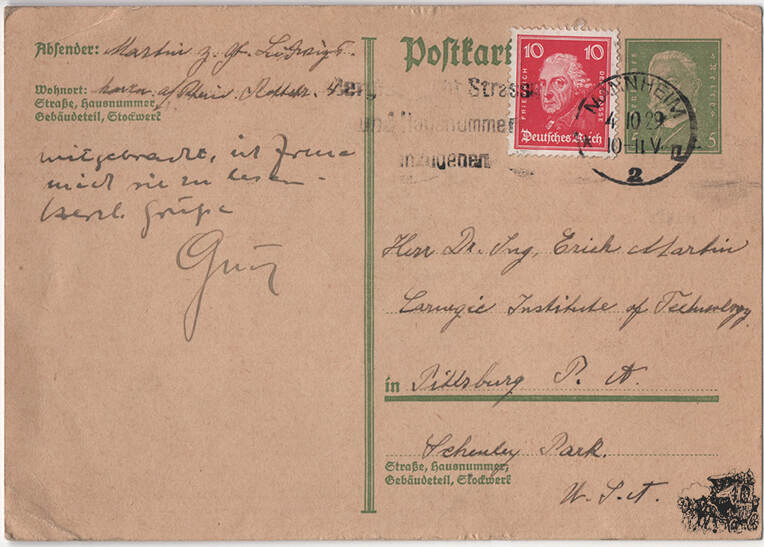 Absender: Martin z. Zt. Ludwigs
Wohnort: a/Rhein.
Straße, Hausnummer,
Gebäudeteil, Stockwerk
mitgebracht, ich freue
mich sie zu lesen
herzl. Grüße
Postkart
10 10
FRIEDRICH DER GROSSE
Deutsches Reich
Strasse
und Hausnummer
anzugeben
MANNHEIM
4.10.29
10-11 V.
2
5
Herr Dr. Ing. Erich Martin
Carnegie Institute of Technology
in Pittsburg P. A.
Schenley Park.
Straße, Hausnummer,
Gebäudeteil, Stockwerk
U. S. A.